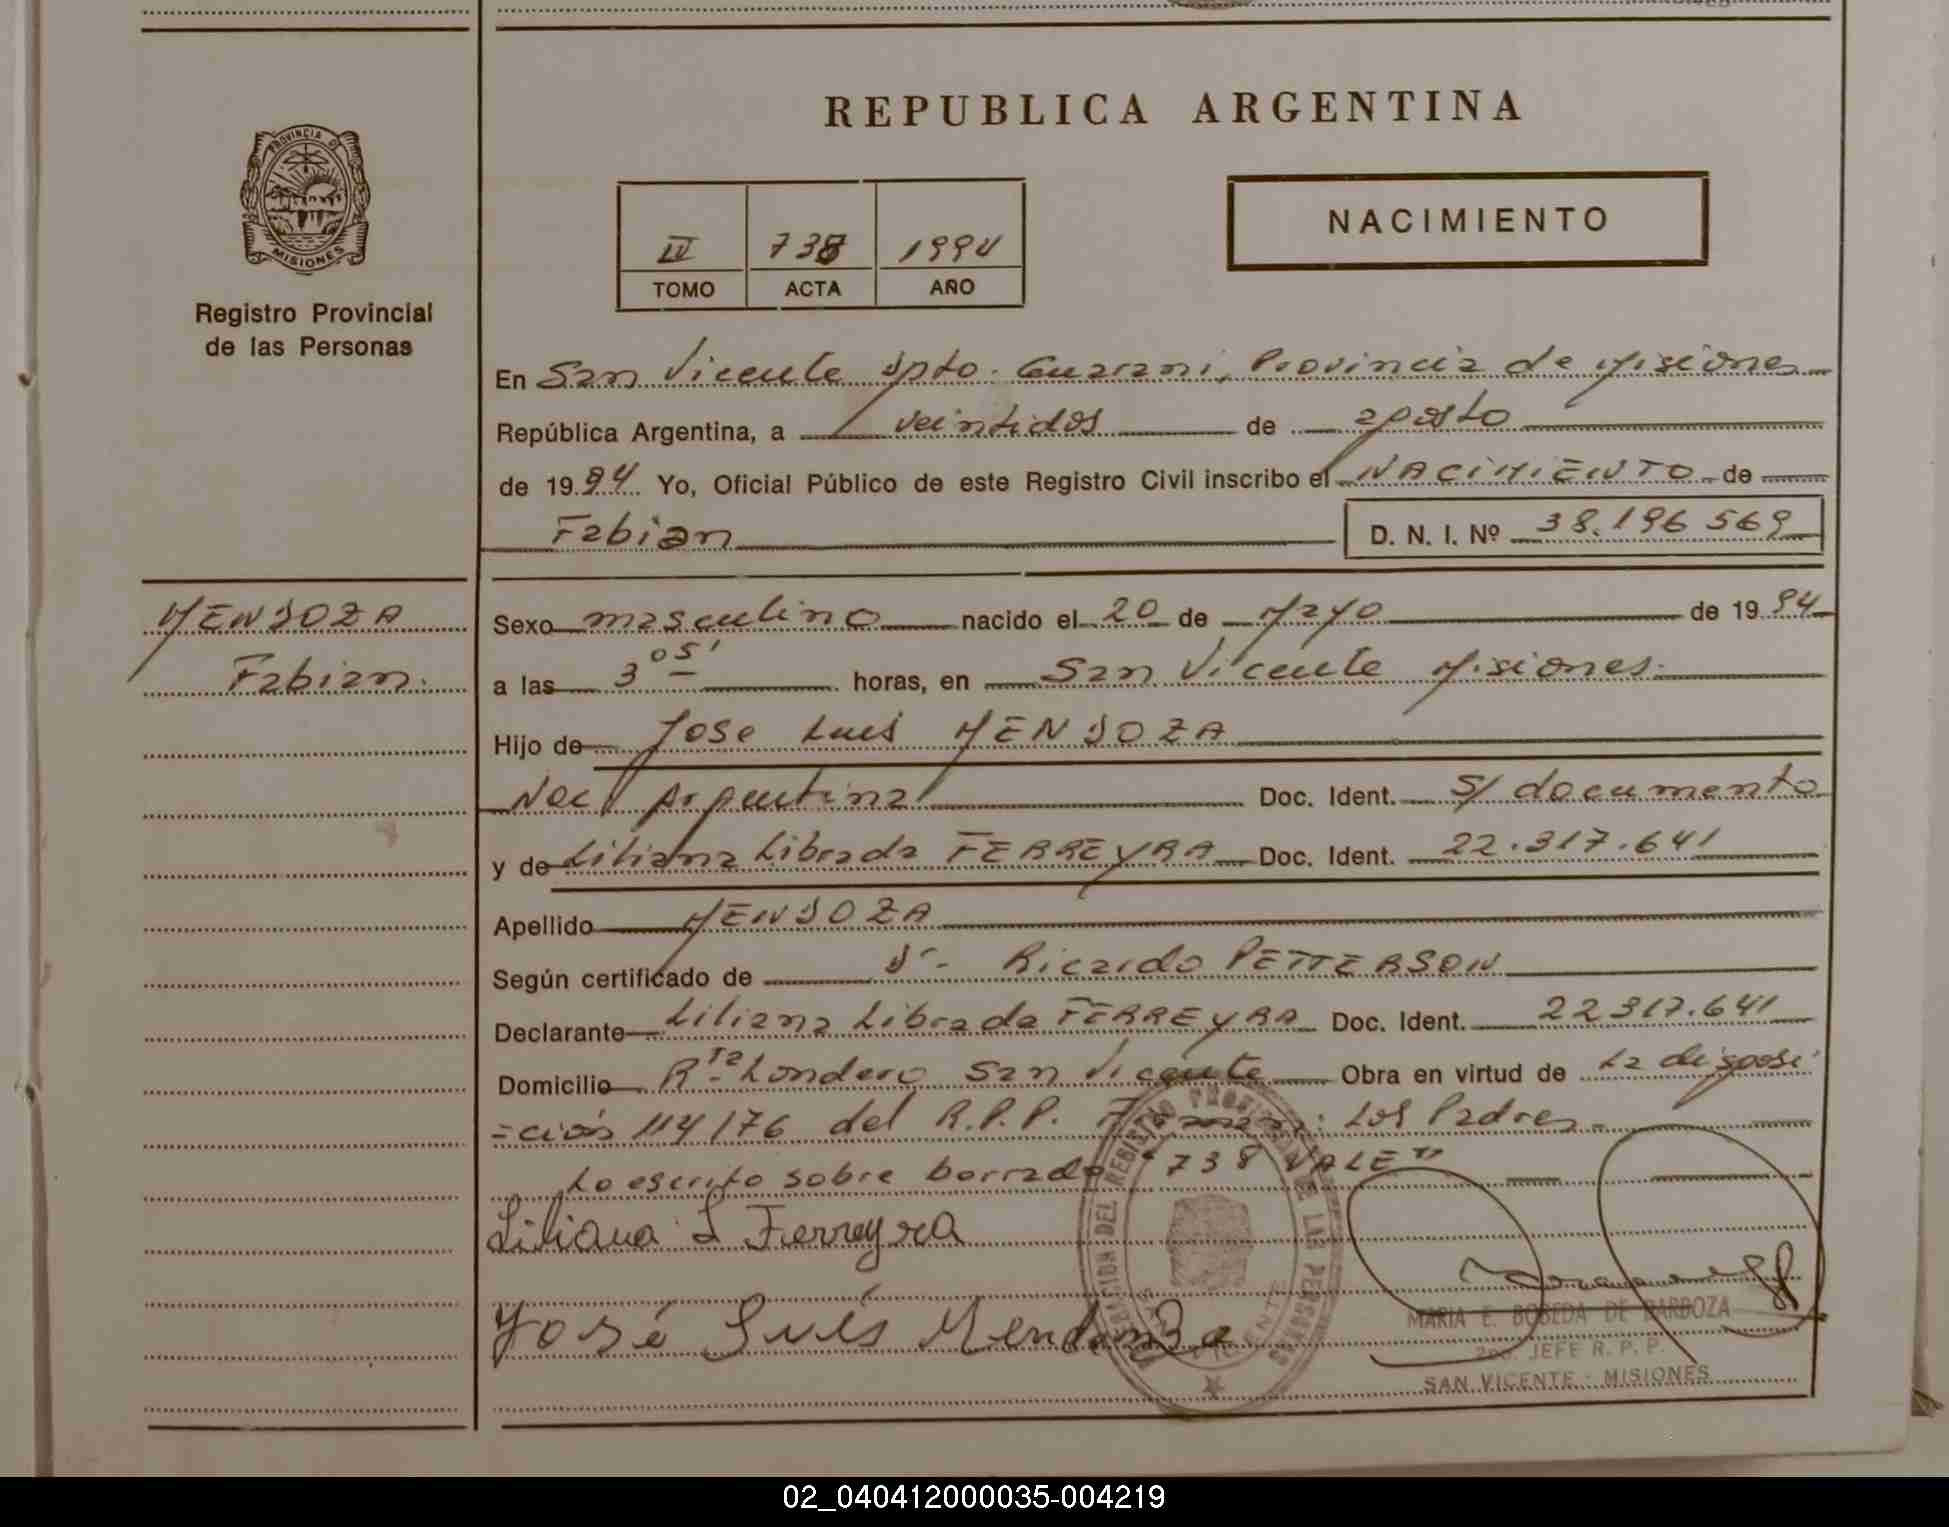 REPUBLICA ARGENTINA
PROVINCIA DE
MISIONES
Registro Provincial
de las Personas
IV 738 1994
TOMO ACTA AÑO
NACIMIENTO
En San Vicente dpto. Guarani, Provincia de Misiones
República Argentina, a veintidos de agosto
de 1994 Yo, Oficial Público de este Registro Civil inscribo el NACIMIENTO de
Fabian D. N. I. Nº 38.196569
MENDOZA
Fabian.
Sexo masculino nacido el 20 de Mayo de 1994
a las 3 05' horas, en San Vicente Misiones.
Hijo de Jose Luis MENDOZA
Nac Argentina Doc. Ident. S/ documento
y de Liliana Librada FERREYRA Doc. Ident. 22.317.641
Apellido MENDOZA
Según certificado de Dr. Ricardo PETTERSON
Declarante Liliana Librada FERREYRA Doc. Ident. 22317.641
Domicilio Rta Londero San Vicente Obra en virtud de La disposi
=ción 114/76 del R.P.P. Firman: Los Padres.
Lo escrito sobre borrado "738 VALE"
Liliana L Ferreyra
José Luis Mendonza
DELEGACION DEL REGISTRO PROVINCIAL DE LAS PERSONAS
SAN VICENTE
MARIA E. BOBEDA DE BARBOZA
2do. JEFE R. P. P.
SAN VICENTE - MISIONES
02_040412000035-004219